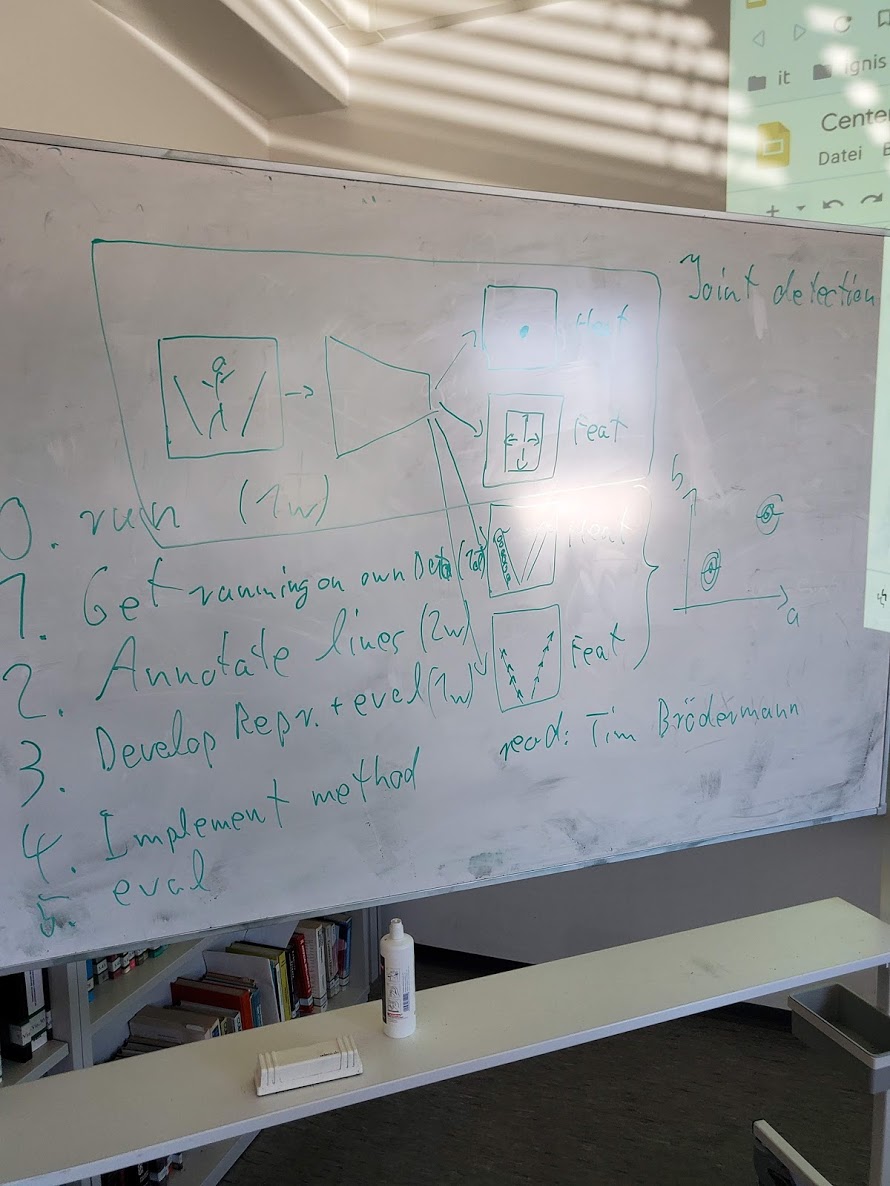 it
ignis
Cente
Datei B
Joint detection
Heat
Feat
Heat
Feat
b
a
0. run (1w)
1. Get running on own Data
2. Annotate lines (2w)
3. Develop Repr. + evel (1w)
4. Implement method
5. eval
read: Tim Brödermann